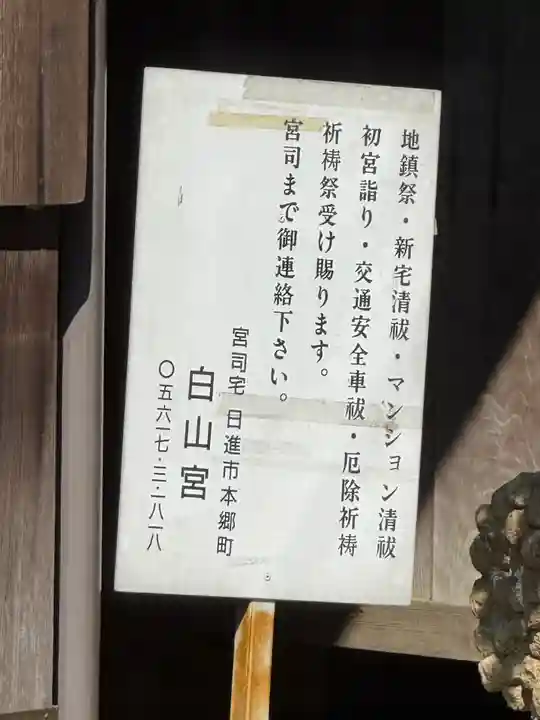 地鎮祭・新宅清祓・マンション清祓
初宮詣り・交通安全車祓・厄除祈祷
祈祷祭受け賜ります。
宮司まで御連絡下さい。
宮司宅 日進市本郷町
白山宮
〇五六一七・三・一八一八